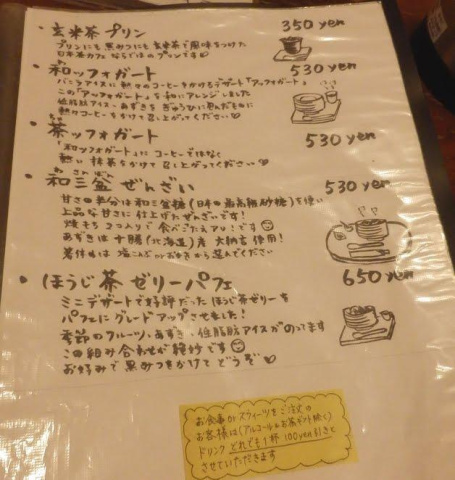 ・玄米茶プリン 350 yen
プリンにも黒みつにも玄米茶で風味をつけた
日本茶カフェならではのプリンです♡
・和ッフォガート 530 yen
バニラアイスに熱々のコーヒーをかけるデザート「アッフォガート」
この「アッフォガート」を和にアレンジしました
低脂肪アイス・あずきをぎゅうひに包んだものに
熱々コーヒーをかけて召し上がってください♡
・茶ッフォガート 530 yen
「和ッフォガート」にコーヒーではなく
熱い抹茶をかけて召し上がってください♡
・和三盆ぜんざい 530 yen
わさんぼん
甘さの半分は和三盆糖(日本の最高級砂糖)を使い
上品な甘さに仕上げたぜんざいです!
焼もち2コ入りで食べごたえアリ!です
あずきは十勝(北海道)産 大納言使用!
箸休めは塩こんぶかお新香から選んでください
・ほうじ茶ゼリーパフェ 650 yen
ミニデザートで好評だったほうじ茶ゼリーを
パフェにグレードアップさせました!
季節のフルーツ、あずき、低脂肪アイスがのってます
この組み合わせが絶妙です
お好みで黒みつをかけてどうぞ♡
お食事かスウィーツをご注文の
お客様は(アルコール・お茶セット除く)
ドリンクどれでも1杯100yen引きと
させていただきます